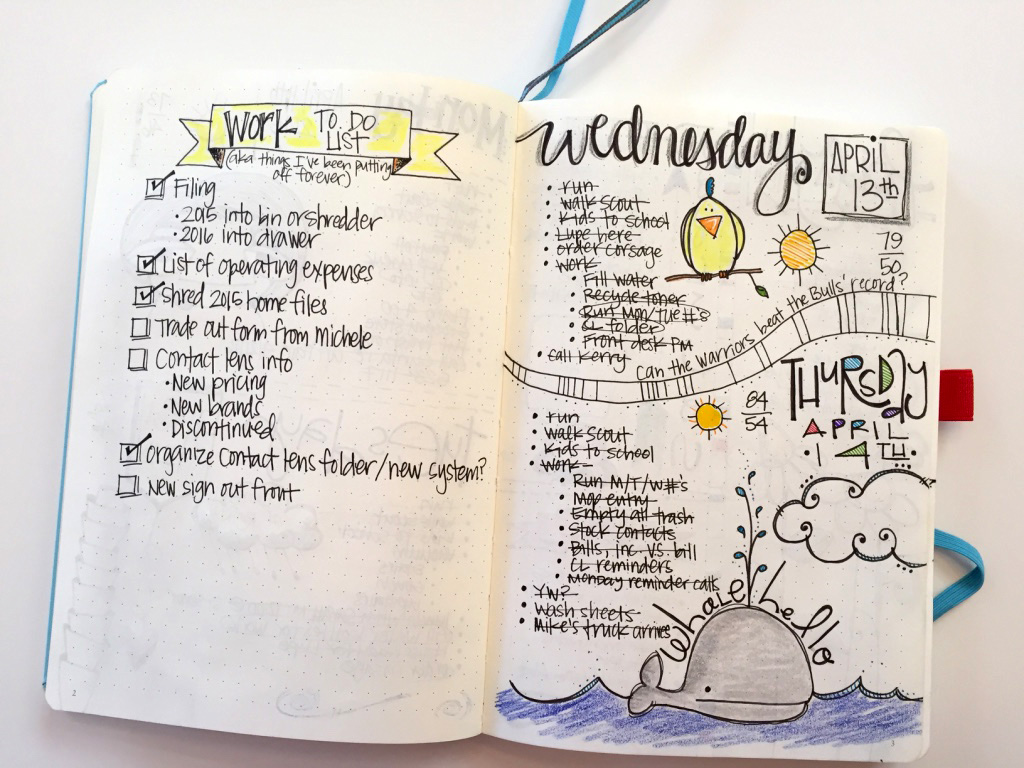 Work TO DO
LIST
(aka things I've been putting
off forever)
Filing
• 2015 into bin or shredder
• 2016 into drawer
List of operating expenses
Shred 2015 home files
Trade out form from michele
Contact lens info
• New pricing
• New brands
• Discontinued
Organize Contact lens folder/new system?
New sign out front
2
wednesday
APRIL
13th
• run
• walk scout
• Kids to school
• Lupe here
• order corsage
• work
• Fill water
• Recycle toner
• Run Mon/Tue #'s
• CL folder
• Front desk PM
• call Kerry
79
50
Can the warriors beat the Bulls' record?
THURSDAY
APRIL
• 14TH •
84
54
• run
• walk scout
• Kids to school
• work
• Run M/T/W #'s
• Mop entry
• Empty all trash
• Stock contacts
• Bills, Inc. vs. bill
• CL reminders
• Monday reminder calls
• YW?
• Wash sheets
• Mike's truck arrives
Whale hello
3